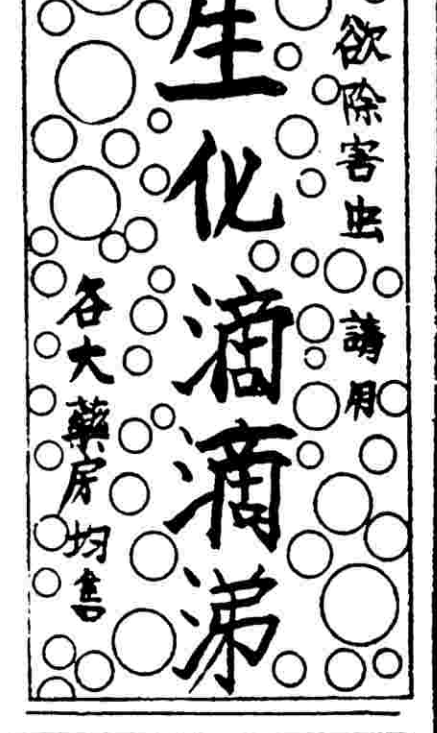 欲除害虫 請用
生化滴滴涕
各大藥房均售